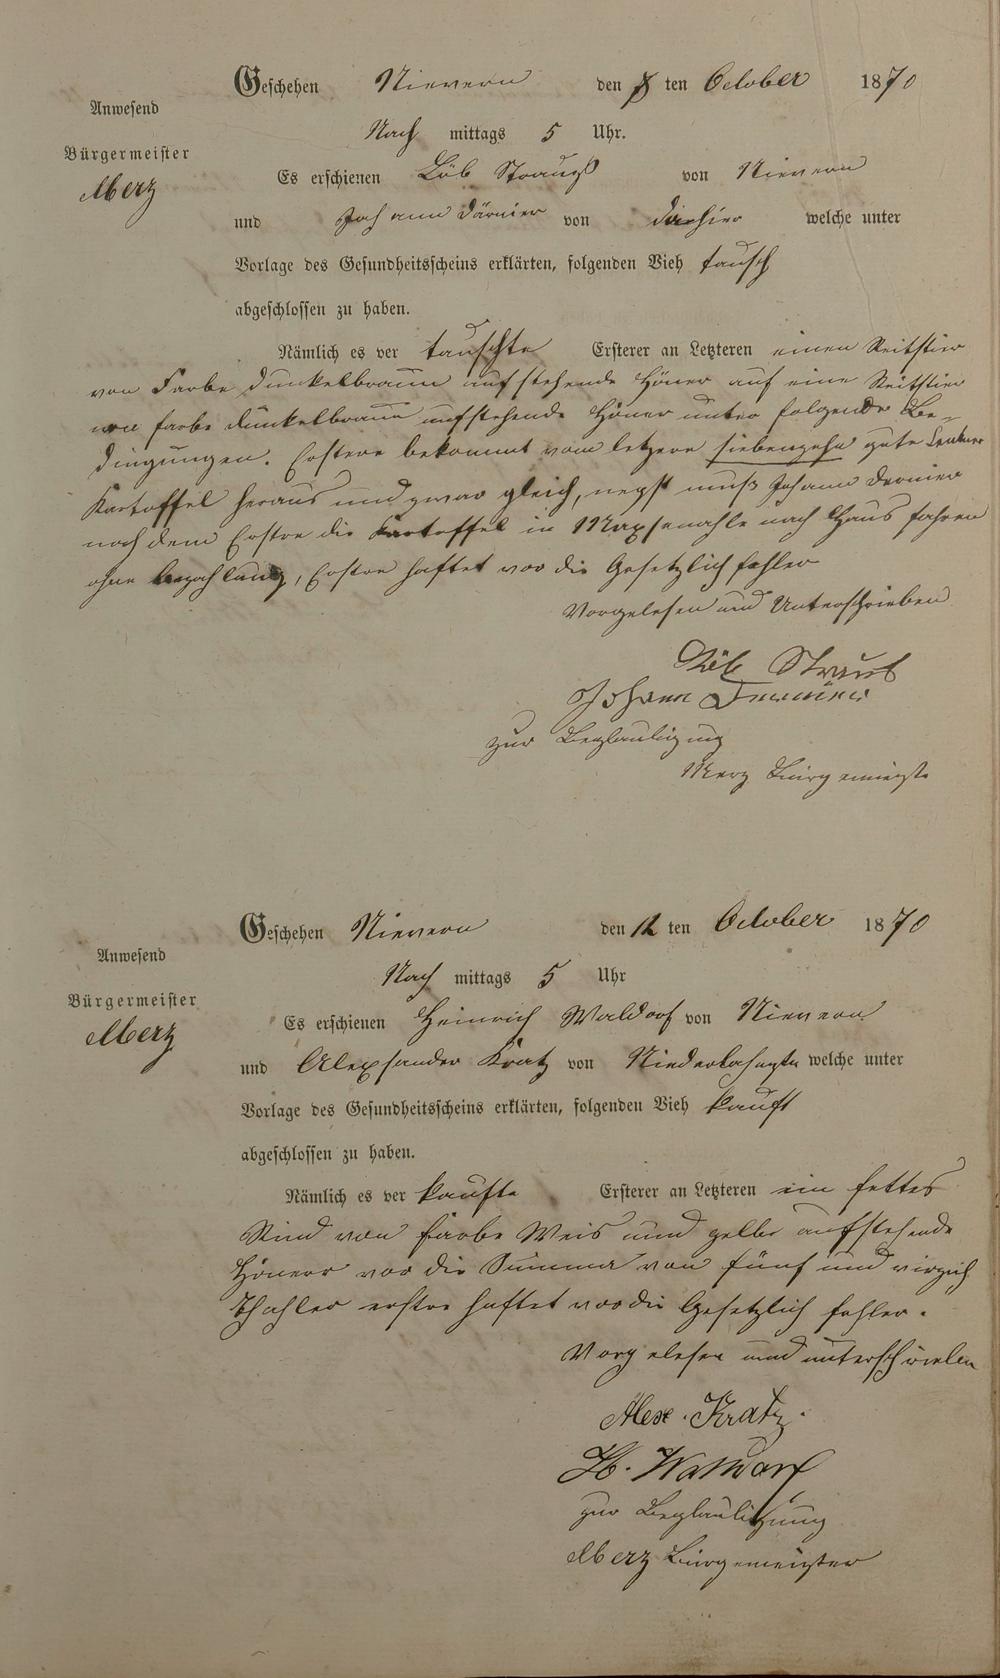 Geschehen Nievern den 8 ten October 1870
Anwesend
Nach mittags 5 Uhr.
Bürgermeister
Merz
Es erschienen Löb Strauß von Nievern
und Johann Därnier von dahier welche unter
Vorlage des Gesundheitsscheins erklärten, folgenden Vieh tausch
abgeschlossen zu haben.
Nämlich es ver tauschte Ersterer an Letzteren einen Reitstier
von Farbe dunkelbraun aufstehende Höner auf eine Reitstier
von farbe dunkelbraun aufstehende Höner unter folgende Be-
dingungen. Erstere bekommt vom letzere siebenzehn gute Centner
Kartoffel heraus und zwar gleich, nebst muß Johann Dernier
noch dem Erstre die Kartoffel in nach Haus fahren
ohne bezahlung, Erstre haftet vor die Gesetzlich fehler
Vorgelesen und Unterschrieben
Löb Straus
Johann Dernier
zur Beglaubigung
Merz Bürgemeister
Geschehen Nievern den 12 ten October 1870
Anwesend
Nach mittags 5 Uhr
Bürgermeister
Merz
Es erschienen Heinrich Waldorf von Nievern
und Alexsander Kratz von Niederlahnste welche unter
Vorlage des Gesundheitsscheins erklärten, folgenden Vieh kauft
abgeschlossen zu haben.
Nämlich es ver kaufte Ersterer an Letzteren ein fettes
Rind von farbe Weis und gelbe aufstehende
Höner vor die Summa von fünf und virzich
Thahler erstre haftet vor die Gesetzlich fehler.
Vorgelesen und unterschrieben
Alex. Kratz.
H. Waldorf
zur Beglaubigung
Merz Bürgemeister